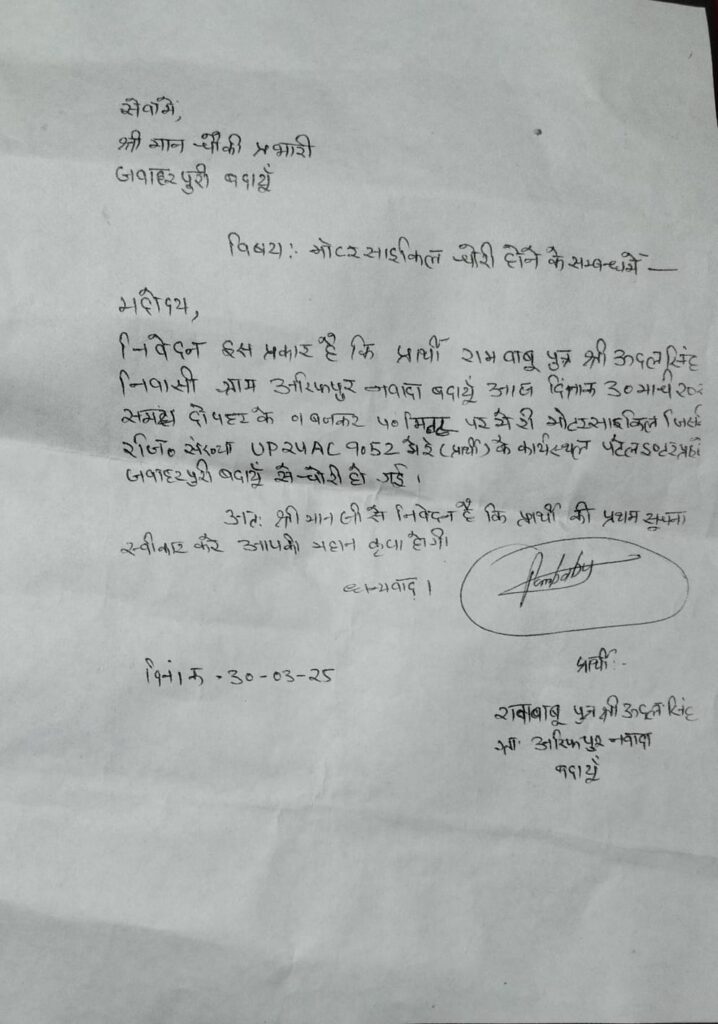 सेवामें,
श्री मान चौकी प्रभारी
जवाहरपुरी बदायूँ
विषय:- मोटर साइकिल चोरी होने के सम्बन्ध में —
महोदय,
निवेदन इस प्रकार है कि प्रार्थी राम बाबू पुत्र श्री ऊदल सिंह
निवासी ग्राम अरिफपुर नवादा बदायूँ आज दिनांक 30 मार्च
समय दोपहर के १ बजकर ५० मिनट पर मेरी मोटरसाइकिल जिसकी
रजि० संख्या UP24AC 9052 मेरे (प्रार्थी) के कार्यस्थल पटेल
जवाहरपुरी बदायूँ से चोरी हो गई ।
अत: श्री मान जी से निवेदन है कि प्रार्थी की प्रथम सूचना
स्वीकार करे आपकी महान कृपा होगी।
धन्यवाद ।
Rambabu
प्रार्थी:-
दिनांक - 30-03-25
रामबाबू पुत्र श्री ऊदल सिंह
ग्रा: अरिफपुर नवादा
बदायूँ